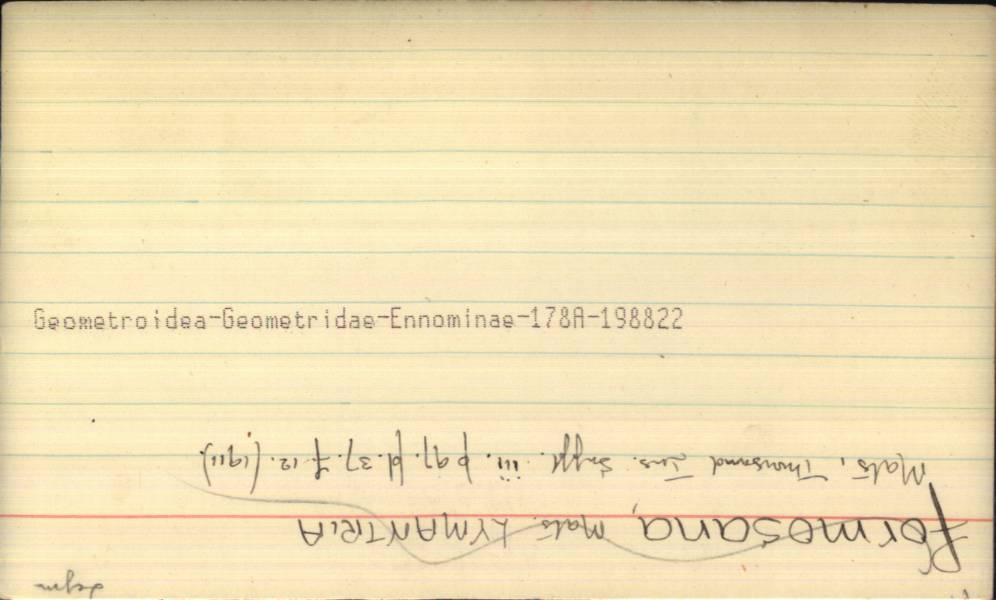 formosana, Mats. LYMANTRIA
Mats, Thousand Ins. Suppl. iii. p 97. pl. 37. f. 12. (1911).
Geometroidea-Geometridae-Ennominae-178A-198822